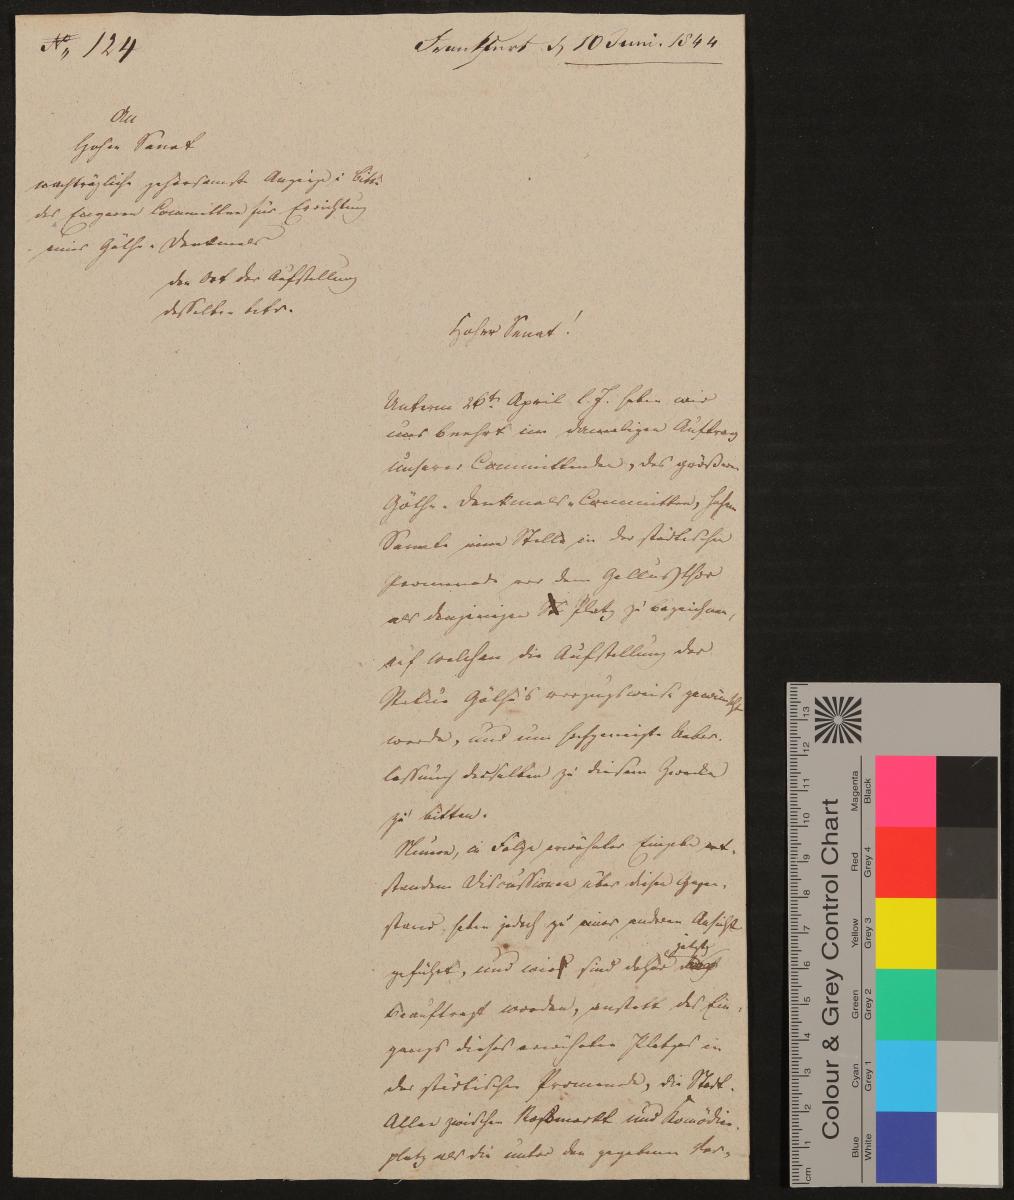 No 124
Frankfurt d 10 Juni. 1844
An
Hohen Senat
nachträgliche gehorsamste Anzeige u Bitte
des Engeren Committee für Errichtung
eines Göthe-Denkmals
den Ort der Aufstellung
desselben betr.
Hoher Senat!
Unterm 26ten April l. J. haben wir
uns beehrt im damaligen Auftrag
unserer Committenden, des größeren
Göthe-Denkmals-Committee, hohem
Senate eine Stelle in der städtischen
Promenade vor dem Gallusthor
als denjenigen Platz zu bezeichnen,
auf welchem die Aufstellung der
Statüe Göthe's vorzugsweise gewünscht
werde, und um hochgeneigte Ueber-
lassung desselben zu diesem Zwecke
zu bitten.
Neuere, in Folge erwähnter Eingabe ent-
standene Discussionen über diesen Gegen-
stand haben jedoch zu einer anderen Ansicht
geführt, und wir sind daher jetzt
beauftragt worden, anstatt des Ein-
gangs dieses erwähnten Platzes in
der städtischen Promenade, die Stadt-
Allee zwischen Roßmarkt und Komödien-
platz als die unter den gegebenen Ver-
Colour & Grey Control Chart
Blue Cyan Green Yellow Red Magenta
White Grey 1 Grey 2 Grey 3 Grey 4 Black
cm 1 2 3 4 5 6 7 8 9 10 11 12 13